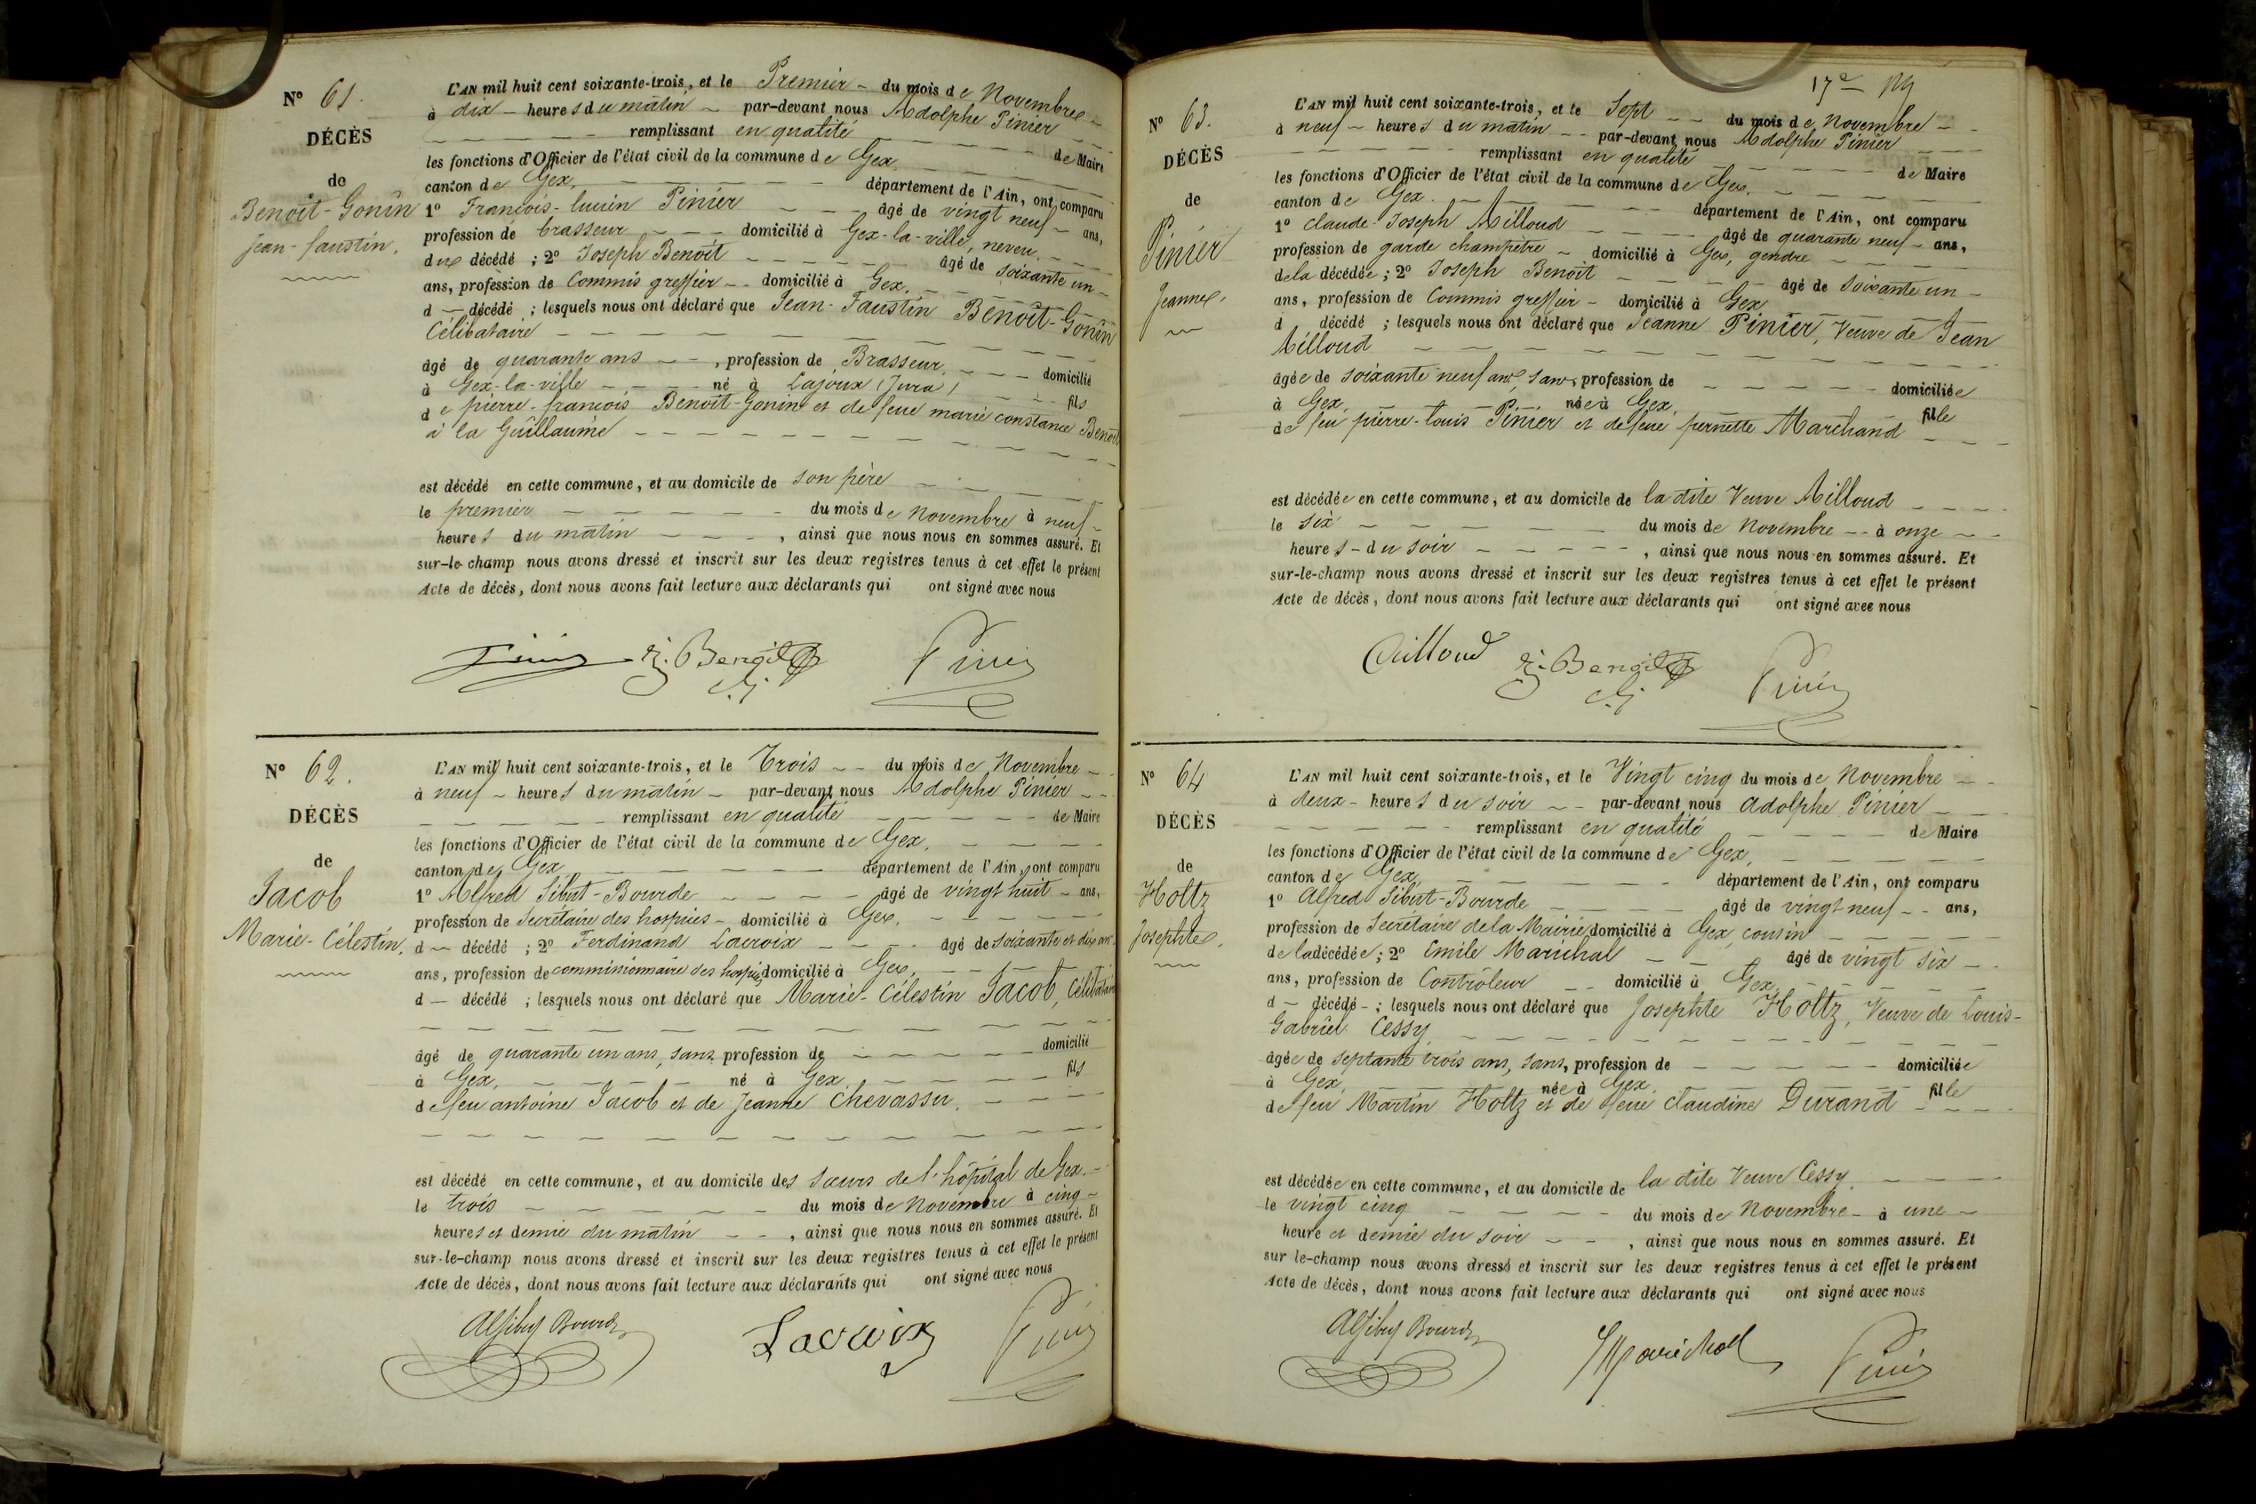 N° 61.
DÉCÈS
de
Benoit-Gonin
jean-faustin.
L'AN mil huit cent soixante-trois, et le Premier du mois de Novembre
à dix heures du matin par-devant nous Adolphe Pinier
remplissant en qualité de Maire
les fonctions d'Officier de l'état civil de la commune de Gex,
canton de Gex, département de l'Ain, ont comparu
1° François-lucien Pinier âgé de vingt neuf ans,
profession de brasseur domicilié à Gex-la-ville, neveu
du décédé ; 2° Joseph Benoit âgé de soixante un
ans, profession de Commis greffier domicilié à Gex,
d décédé ; lesquels nous ont déclaré que Jean-Faustin Benoit-Gonin
Célibataire
âgé de quarante ans, profession de Brasseur, domicilié
à Gex-la-ville né à Lajoux (Jura) fils
de pierre-françois Benoit-Gonin et de feue marie constance Benoit
à la Guillaume
est décédé en cette commune, et au domicile de son père
le premier du mois de Novembre à neuf
heures du matin, ainsi que nous nous en sommes assuré. Et
sur-le-champ nous avons dressé et inscrit sur les deux registres tenus à cet effet le présent
Acte de décès, dont nous avons fait lecture aux déclarants qui ont signé avec nous
Pinier J. Benoit C.G. Pinier
N° 62.
DÉCÈS
de
Jacob
Marie-Célestin.
L'AN mil huit cent soixante-trois, et le Trois du mois de Novembre
à neuf heures du matin par-devant nous Adolphe Pinier
remplissant en qualité de Maire
les fonctions d'Officier de l'état civil de la commune de Gex,
canton de Gex département de l'Ain, ont comparu
1° Alfred Sibut-Bourde âgé de vingt huit ans,
profession de Secrétaire des hospices domicilié à Gex,
d décédé ; 2° Ferdinand Lacroix âgé de soixante et dix ans
ans, profession de commissionnaire des hospices domicilié à Gex,
d décédé ; lesquels nous ont déclaré que Marie-Célestin Jacob, Célibataire
âgé de quarante un ans, sans profession de domicilié
à Gex, né à Gex, fils
de feu antoine Jacob et de Jeanne Chevassu.
est décédé en cette commune, et au domicile des sœurs de l'hôpital de Gex.
le trois du mois de Novembre à cinq
heures et demie du matin, ainsi que nous nous en sommes assuré. Et
sur-le-champ nous avons dressé et inscrit sur les deux registres tenus à cet effet le présent
Acte de décès, dont nous avons fait lecture aux déclarants qui ont signé avec nous
Al Sibut Bourde Lacroix Pinier
17e
N° 63.
DÉCÈS
de
Pinier
Jeanne.
L'AN mil huit cent soixante-trois, et le Sept du mois de Novembre
à neuf heures du matin par-devant nous Adolphe Pinier
remplissant en qualité de Maire
les fonctions d'Officier de l'état civil de la commune de Gex,
canton de Gex. département de l'Ain, ont comparu
1° Claude-Joseph Ailloud âgé de quarante neuf ans,
profession de garde champêtre domicilié à Gex, gendre
de la décédée ; 2° Joseph Benoit âgé de soixante un
ans, profession de Commis greffier domicilié à Gex
d décédé ; lesquels nous ont déclaré que Jeanne Pinier, Veuve de Jean
Ailloud
âgée de soixante neuf ans, sans profession de domiciliée
à Gex, née à Gex, fille
de feu pierre-louis Pinier et de feue pernette Marchand
est décédée en cette commune, et au domicile de la dite Veuve Ailloud
le six du mois de Novembre à onze
heures du soir, ainsi que nous nous en sommes assuré. Et
sur-le-champ nous avons dressé et inscrit sur les deux registres tenus à cet effet le présent
Acte de décès, dont nous avons fait lecture aux déclarants qui ont signé avec nous
Ailloud J. Benoit C.G. Pinier
N° 64
DÉCÈS
de
Holtz
Josephte.
L'AN mil huit cent soixante-trois, et le Vingt cinq du mois de Novembre
à deux heures du soir par-devant nous Adolphe Pinier
remplissant en qualité de Maire
les fonctions d'Officier de l'état civil de la commune de Gex,
canton de Gex, département de l'Ain, ont comparu
1° Alfred Sibut-Bourde âgé de vingt neuf ans,
profession de Secrétaire de la Mairie domicilié à Gex, cousin
de la décédée ; 2° Emile Marichal âgé de vingt six
ans, profession de Contrôleur domicilié à Gex,
d décédé ; lesquels nous ont déclaré que Josephte Holtz, Veuve de Louis-
Gabriel Cessy
âgée de septante trois ans, sans, profession de domiciliée
à Gex, née à Gex, fille
de feu Martin Holtz et de feue Claudine Durand
est décédée en cette commune, et au domicile de la dite Veuve Cessy.
le vingt cinq du mois de Novembre à une
heure et demie du soir, ainsi que nous nous en sommes assuré. Et
sur le-champ nous avons dressé et inscrit sur les deux registres tenus à cet effet le présent
Acte de décès, dont nous avons fait lecture aux déclarants qui ont signé avec nous
Al Sibut Bourde Marichal Pinier